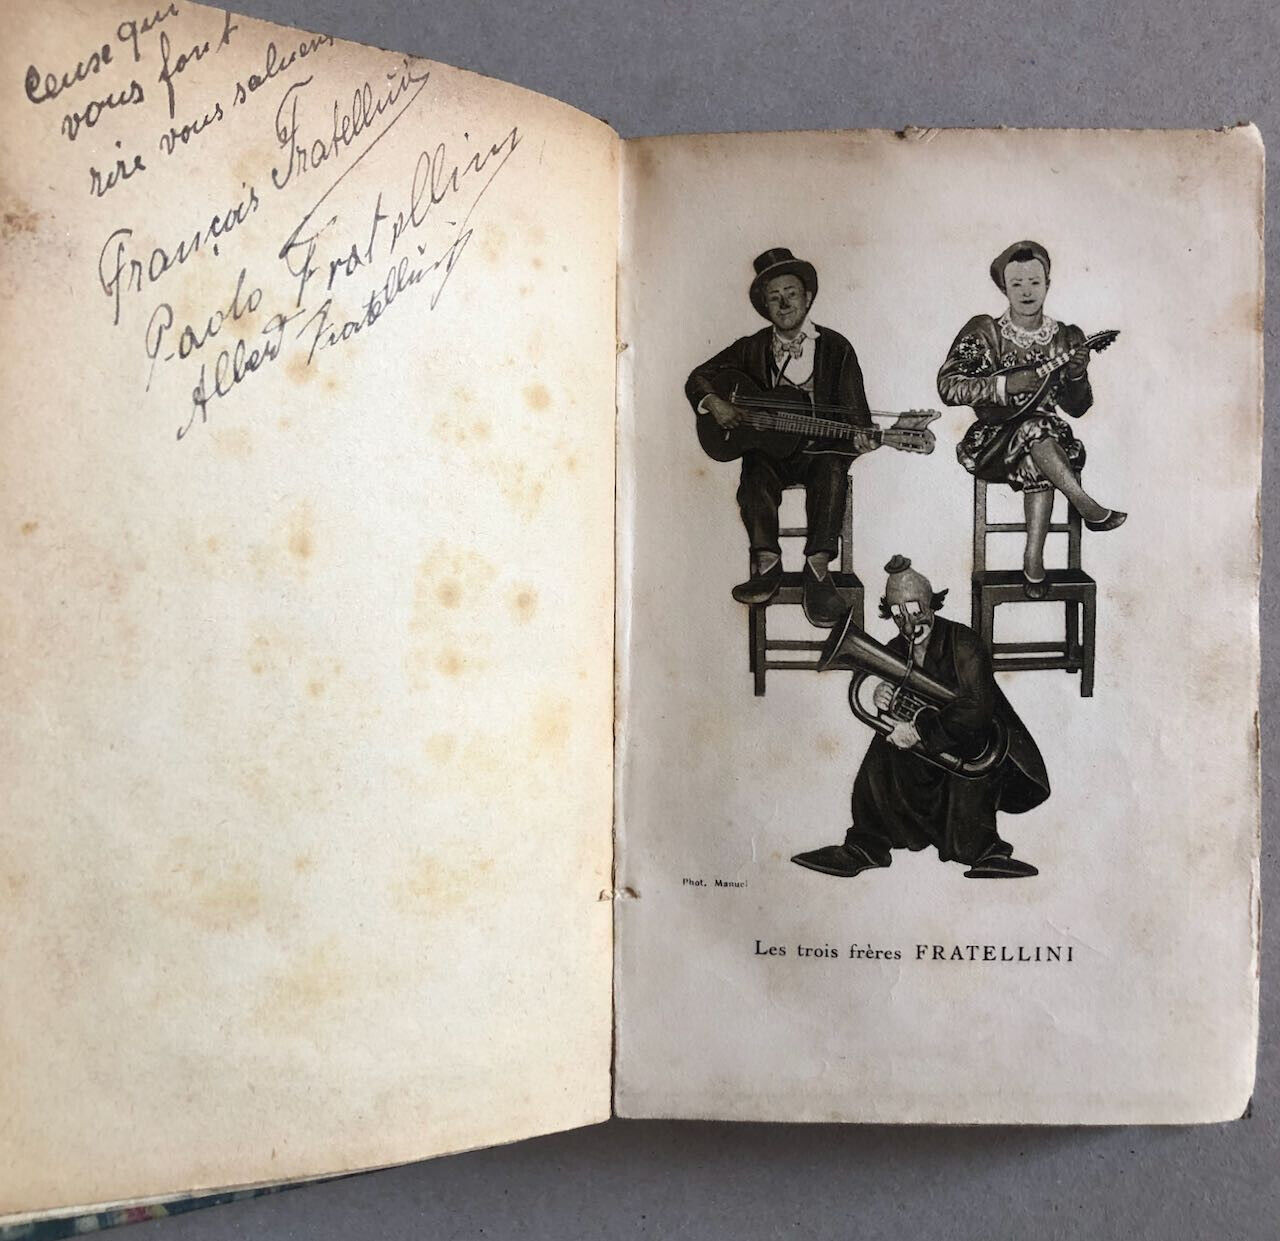 Ceuse qui
vous font
rire vous saluent
François Fratellini
Paolo Fratellini
Albert Fratellini
Phot. Manuel
Les trois frères FRATELLINI